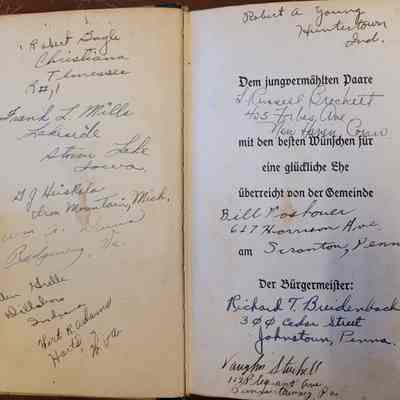 Robert Engle
Christiana
Tennessee
R#,1
Frank L Mills
Lakeside
Storm Lake
Iowa
G J Heiskela
Iron Mountain, Mich.
Va.
Dillsboro
Indiana
Hert R. Adams
W. Va
Robert A Young
Huntertown
Ind.
Dem jungvermählten Paare
J. Russell Brockett
405 Forbes Ave
New Haven, Conn
mit den besten Wünschen für
eine glückliche Ehe
überreicht von der Gemeinde
Bill
647 Harrison Ave.
am Scranton, Penn
Der Bürgermeister:
Richard T. Breidenbach
300 Cedar Street
Johnstown, Penna.
Vaughn
Pa